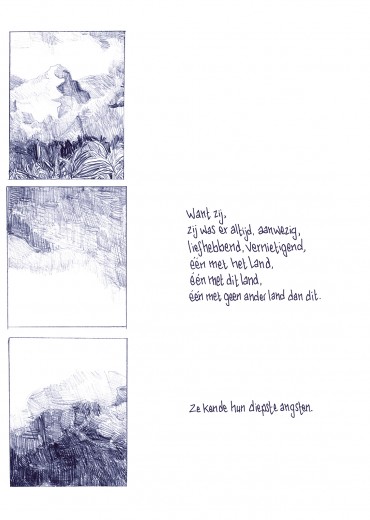 Want zij,
zij was er altijd, aanwezig,
liefhebbend, vernietigend,
één met het land,
één met dit land,
één met geen ander land dan dit.
Ze kende hun diepste angsten.